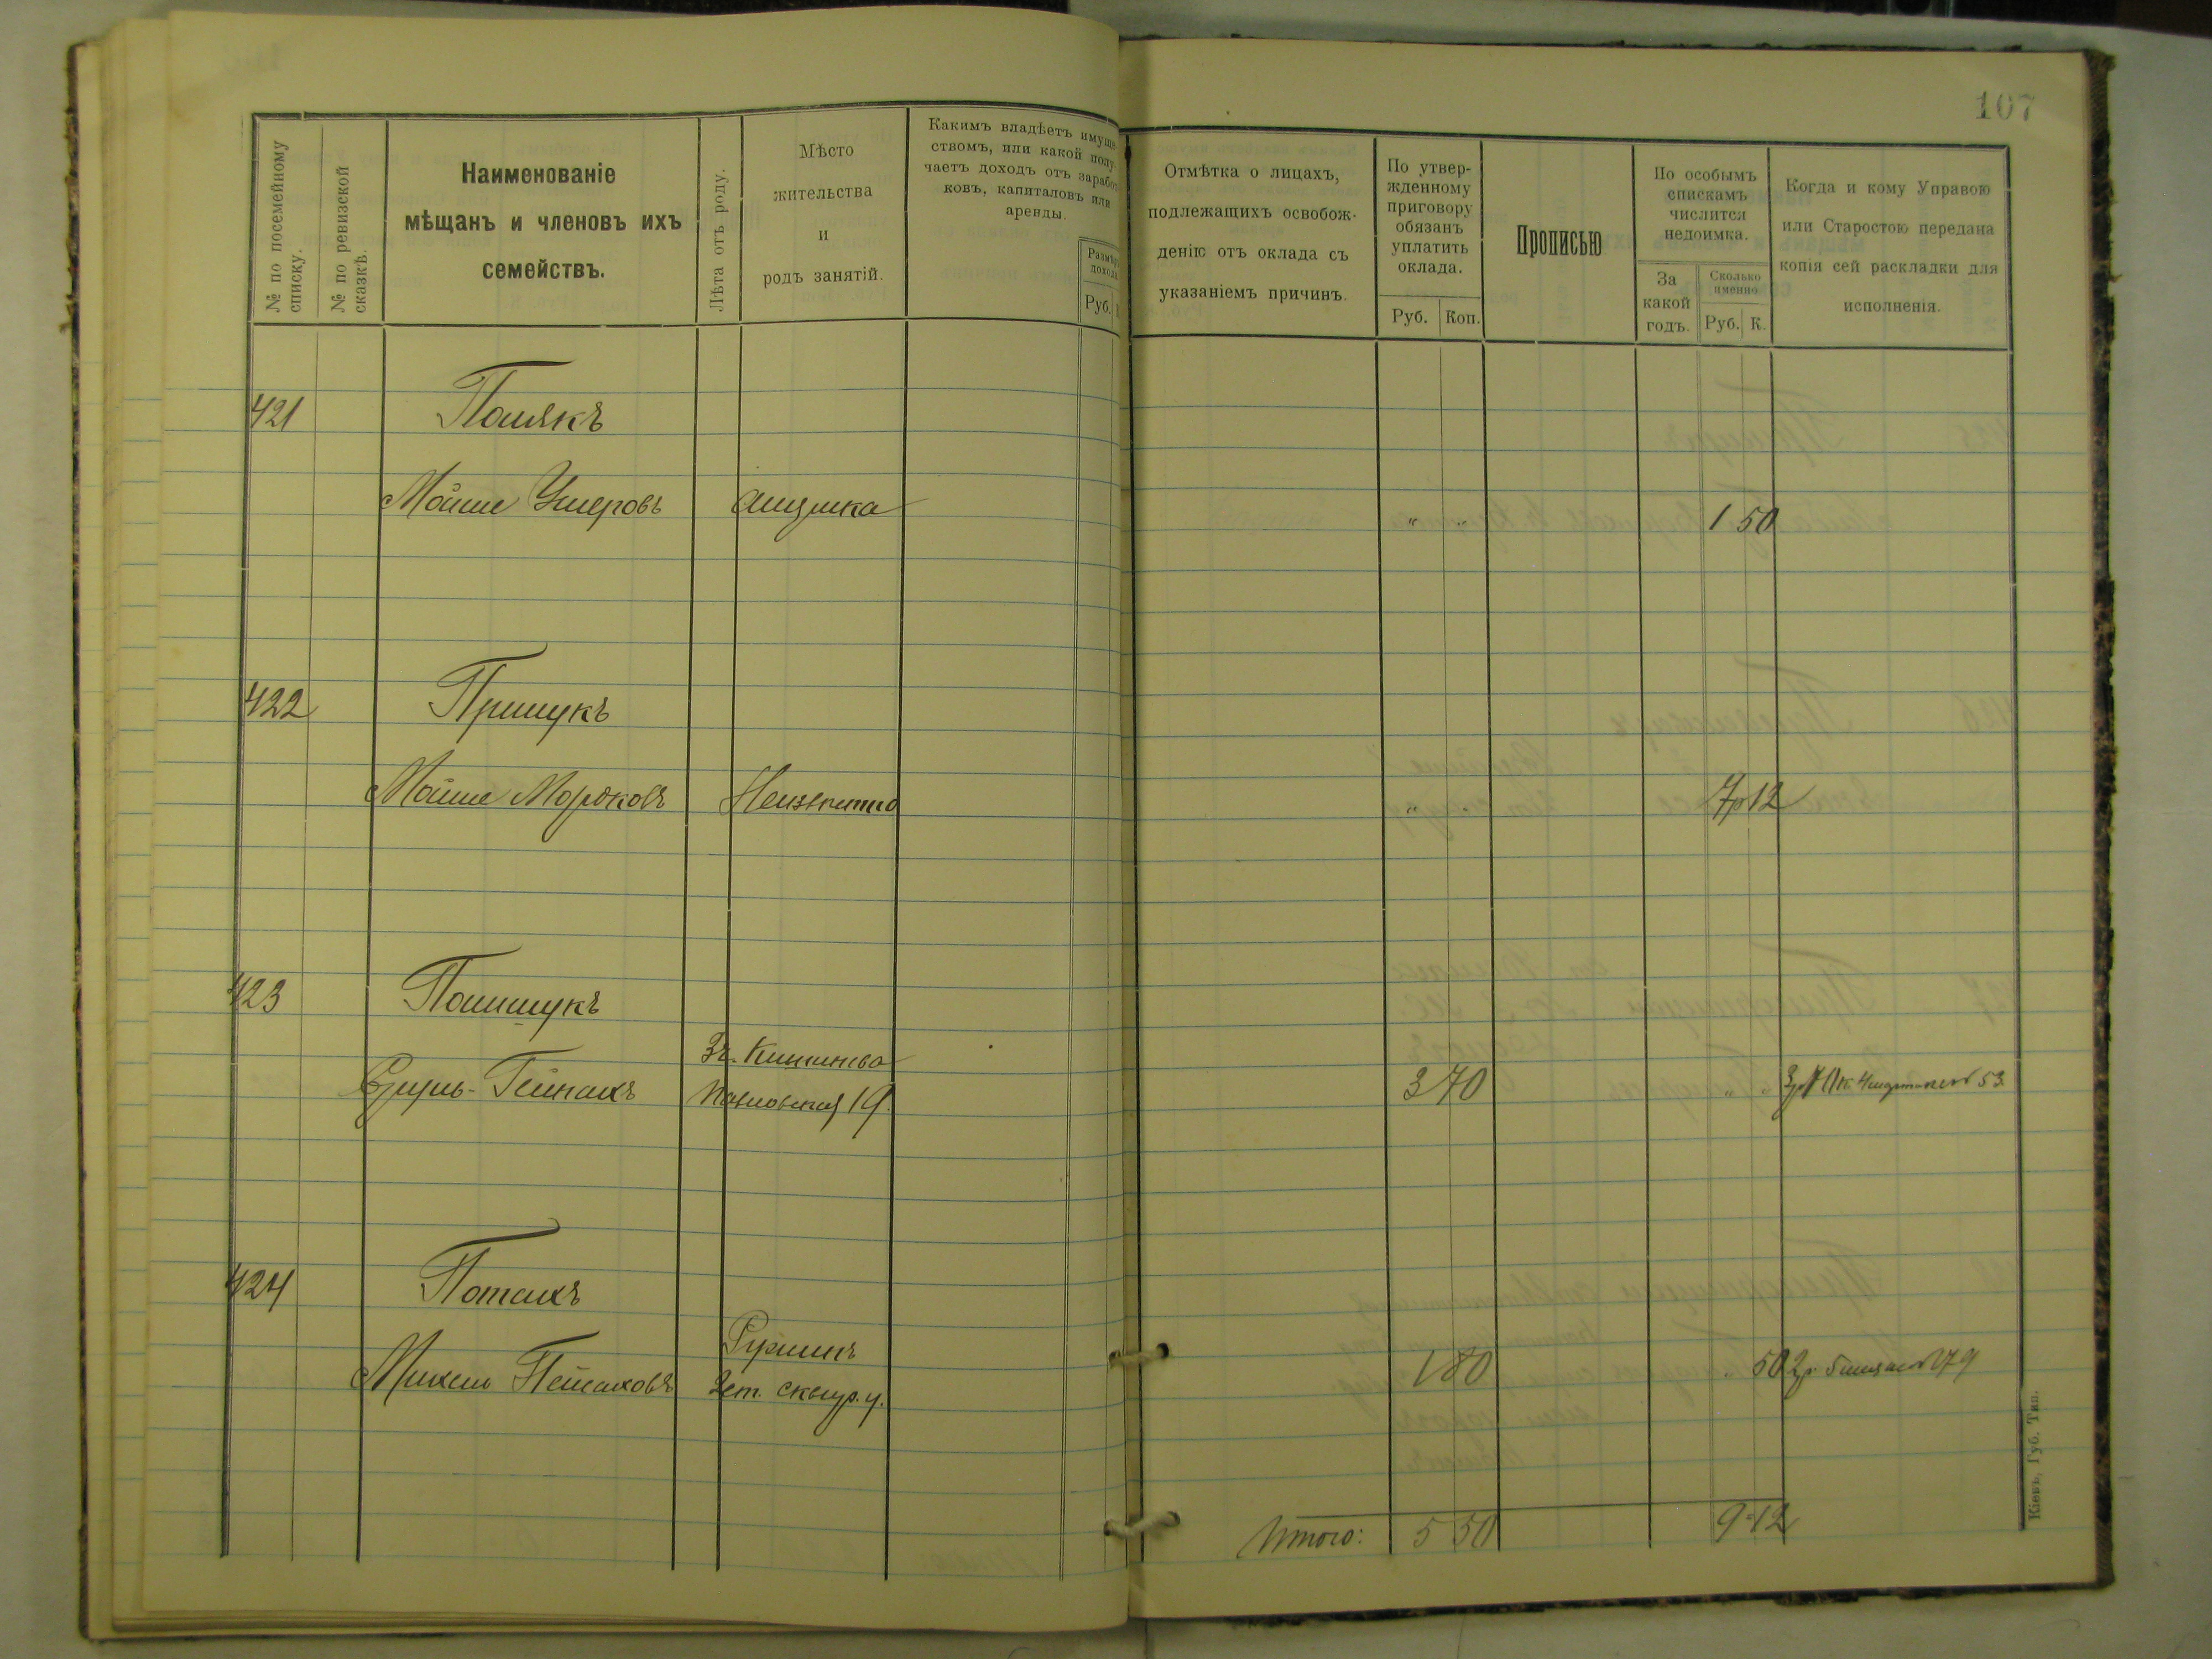 107
№ по посемейному списку.
№ по ревизской сказкѣ.
Наименованіе
мѣщанъ и членовъ ихъ
семействъ.
Лѣта отъ роду.
Мѣсто
жительства
и
родъ занятій.
Какимъ владѣетъ имуще-
ствомъ, или какой полу-
чаетъ доходъ отъ заработ-
ковъ, капиталовъ или
аренды.
Размѣръ
дохода
Руб.
Отмѣтка о лицахъ,
подлежащихъ освобож-
денію отъ оклада съ
указаніемъ причинъ.
По утвер-
жденному
приговору
обязанъ
уплатить
оклада.
Руб. Коп.
Прописью
По особымъ
спискамъ
числится
недоимка.
За
какой
годъ.
Сколько
именно
Руб. К.
Когда и кому Управою
или Старостою передана
копія сей раскладки для
исполненія.
421 Полякъ
Мойше Умеровъ " " 1 50
422 Прищукъ
Мойше Морковъ Неизвестно " " 7 12
423 Полищукъ
Кишинева
Сруль- 19. 3 70 " " 53
424 Потахъ
Ружинъ
Михель Пейсаховъ сквир. у. 1 80 " 50
Итого: 5 50 9 12
Кіевъ, Губ. Тип.